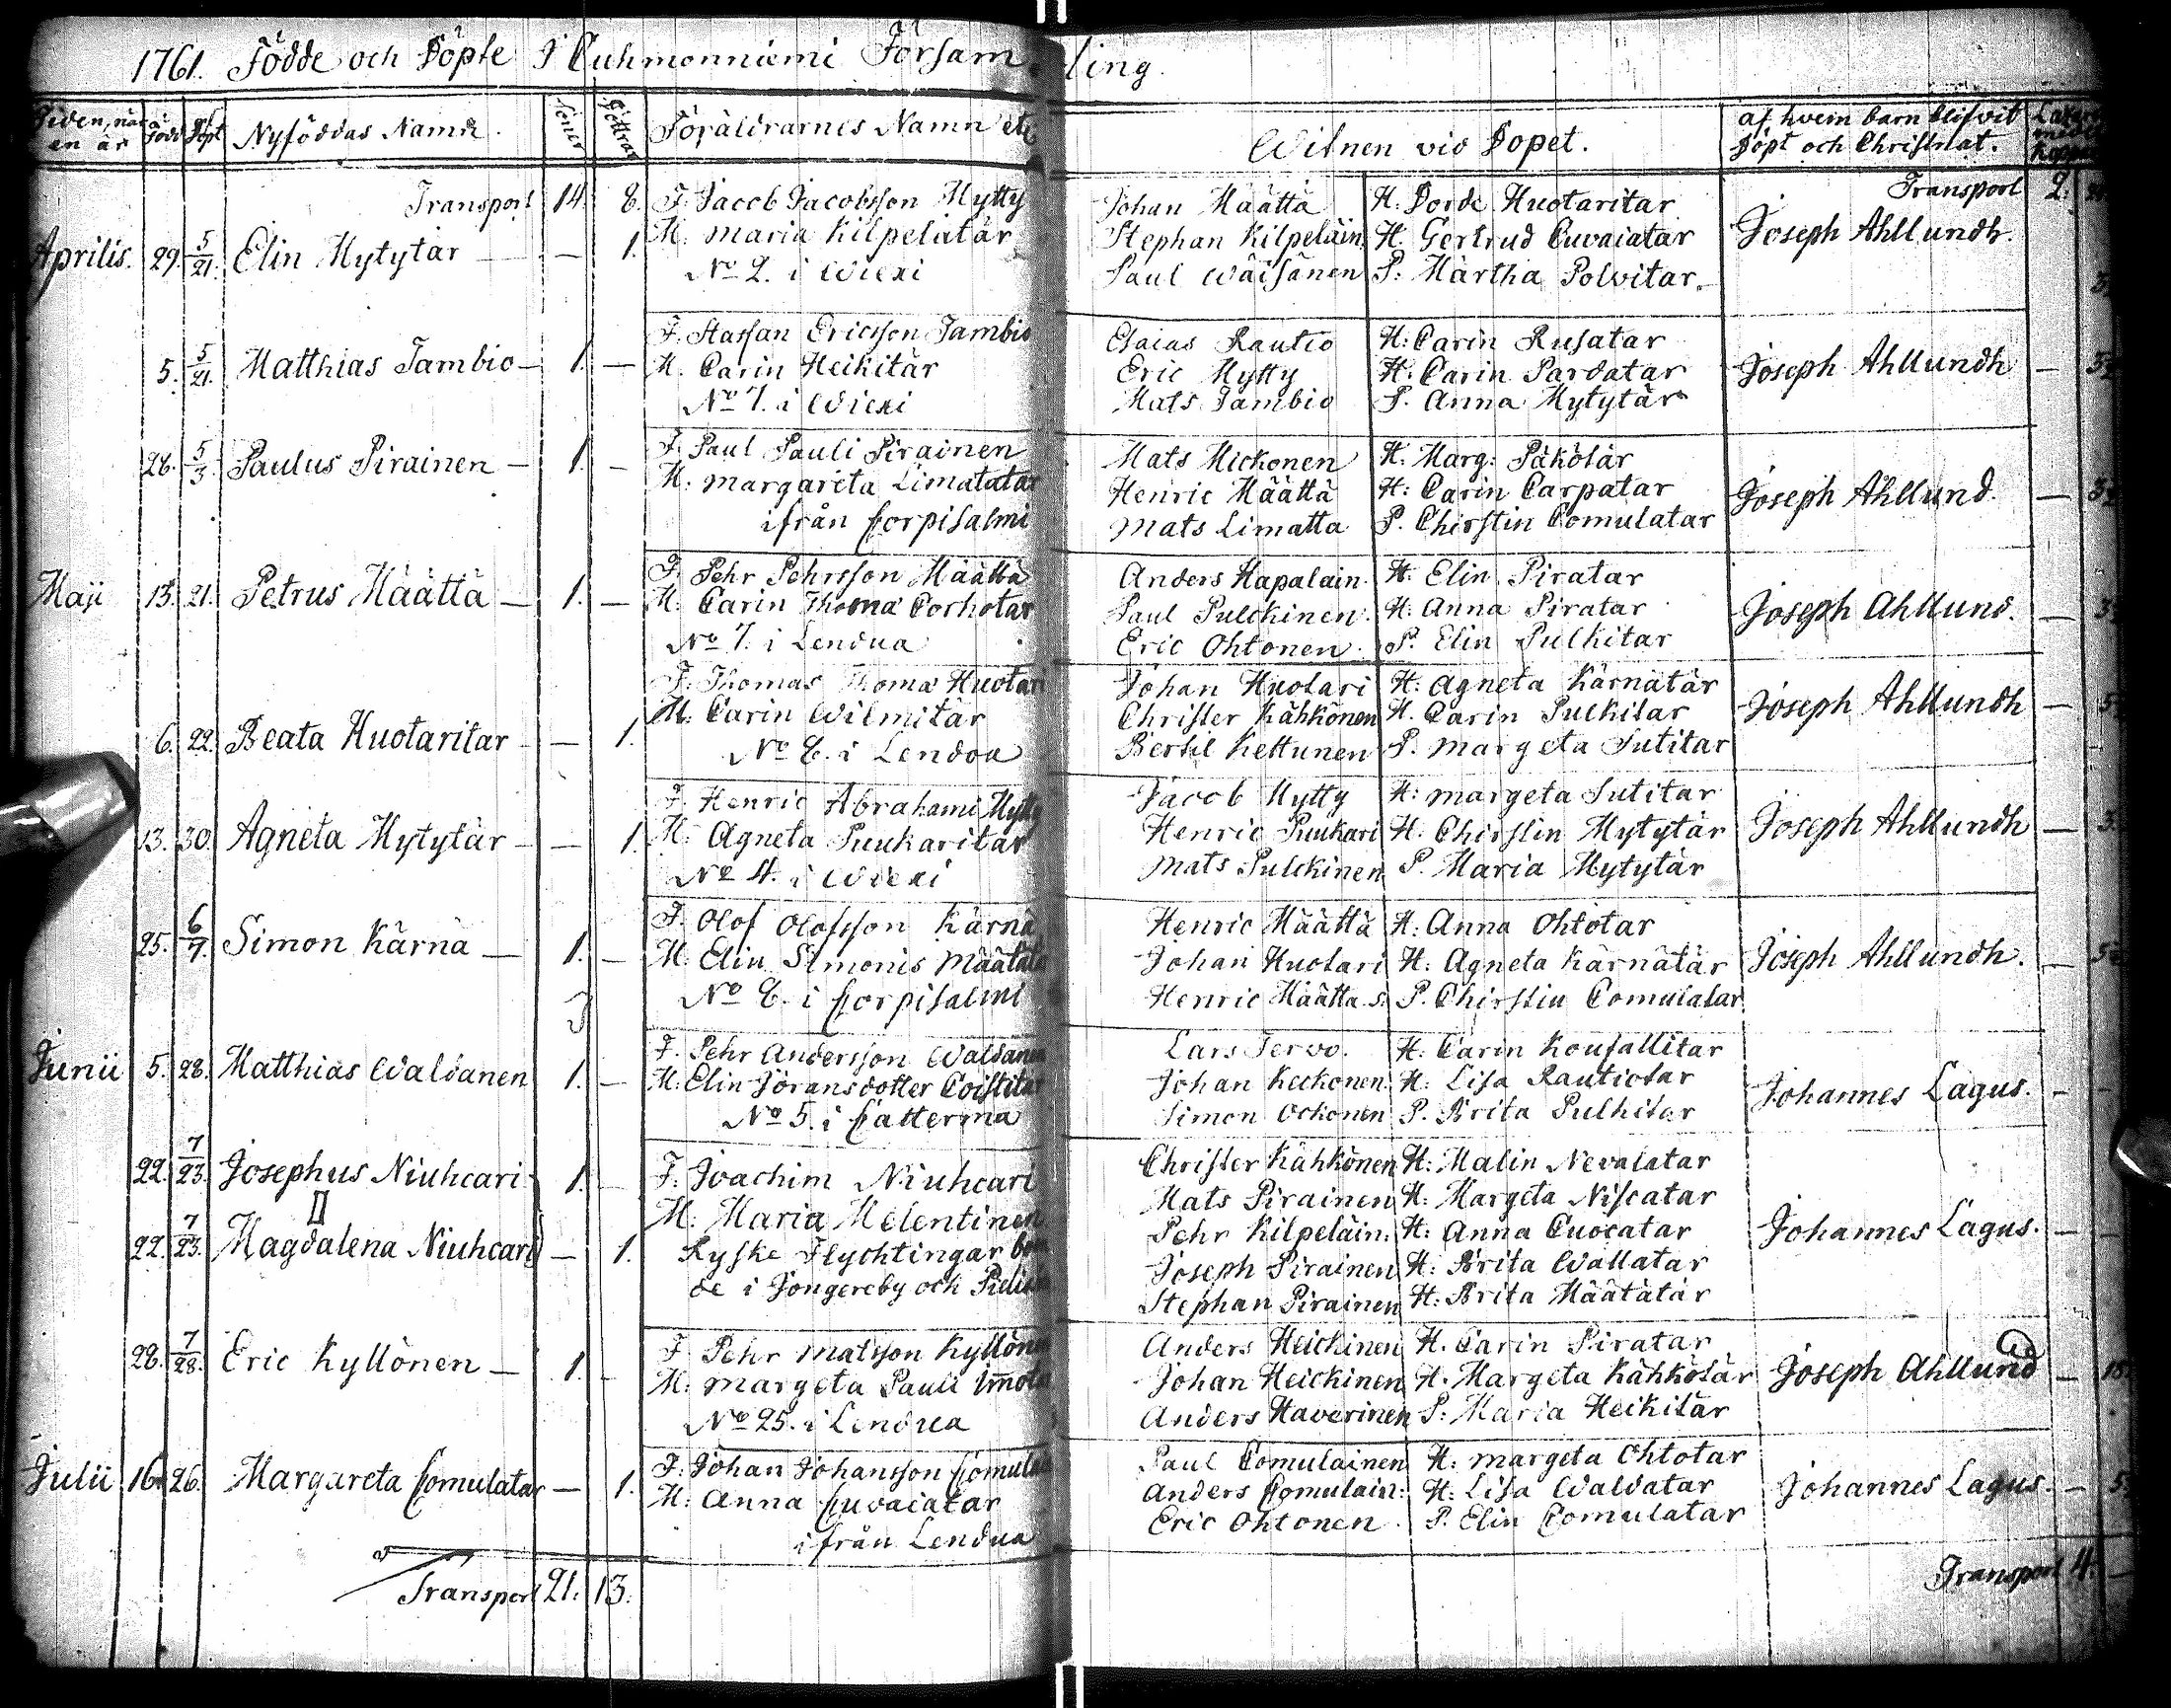 1761. Födde och Döpte I Cuhmonniemi Församling.
Tiden, när en är Född Döpt Nyföddas Namn. Söner Döttrar Föräldrarnes Namn etc Witnen vid Dopet. af hvem barn blifvit Döpt och Christnat.
Transport 14. 8. F. Jacob Jacobsson Mytty Johan Määttä H. Dorde Huotaritar Transport 2.
Aprilis. 29. 5/21. Elin Mytytär — — 1. M. Maria Kilpelatär Stephan Kilpeläin. H. Gertrud Cuvaiatar Joseph Ahllundh.
No 2. i Wiexi Paul Wäisänen P. Märtha Polvitar.
F. Staffan Ericsson Tambio Esaias Rautio H: Carin Rusatar
5. 5/21. Matthias Tambio — 1. — M. Carin Heikitär Eric Mytty H. Carin Pardatar Joseph Ahllundh —
No 7. i Wiexi Mats Tambio P. Anna Mytytär
F. Paul Pauli Pirainen Mats Mickonen H. Marg: Päkötär
28. 5/3. Paulus Pirainen — 1. — M: Margareta Limatatar Henric Määttä H: Carin Carpatar Joseph Ahllund. —
ifrån Corpisalmi Mats Limatta P. Chirstin Comulatar
F. Pehr Pehrsson Määttä Anders Hapalain. H. Elin Piratar
Maji 13. 21. Petrus Määttä — 1. — M. Carin Thoma Corhotar Paul Pulckinen. H: Anna Piratar Joseph Ahllund. —
No 7. i Lendua Eric Ohtonen. P. Elin Pulkitar
F. Thomas Thoma Huotari Johan Huotari H: Agneta Kärnätär
6. 22. Beata Huotaritar — — 1. M: Carin Wilmitär Christer Kähkönen H. Carin Pulkitar Joseph Ahllundh —
No 8. i Lendoa Bertil Kettunen P. Margeta Sutitar
F. Henric Abrahami Mytty Jacob Mytty H: Margeta Sutitar
13. 30. Agneta Mytytär — — 1. M: Agneta Puukaritar Henric Puukari H. Chirstin Mytytär Joseph Ahllundh —
No 4. i Wiexi Mats Pulckinen P. Maria Mytytär
F. Olof Olofsson Kärnä Henric Määttä H: Anna Ohtotar
25. 6/7. Simon Kärnä — 1. — M: Elin Simonis Määtätä Johan Huotari H: Agneta Kärnätär Joseph Ahllundh. —
No 8. i Corpisalmi Henric Määttä s. P. Chirstin Comulatar
F. Pehr Andersson Waldanen Lars Tervo. H: Carin Kousallitar
Junii 5. 28. Matthias Waldanen 1. — M: Elin Jöransdotter Coistitar Johan Keckonen. H: Lisa Rautiotar Johannes Lagus. —
No 5. i Catterma Simon Ockonen P. Brita Pulkitar
22. 7/23. Josephus Niuhcari 1. — F. Joachim Niuhcari Christer Kähkönen H: Malin Nevalatar
II M: Maria Melentinen Mats Pirainen H: Margeta Niscatar
22. 7/23. Magdalena Niuhcari — 1. Ryske Flychtingar boen Pehr Kilpeläin. H: Anna Cuocatar Johannes Lagus. —
de i Jongereby och Pielis Joseph Pirainen H: Brita Wallatar
Stephan Pirainen H: Brita Määtätär
F. Pehr Matsson Kyllönen Anders Heickinen H. Carin Piratar
28. 7/28. Eric Kyllönen — 1. — M: Margeta Pauli Immota Johan Heickinen H. Margeta Kähkötär Joseph Ahllund —
No 25. i Lendua Anders Haverinen P: Maria Heikitär
F. Johan Johansson Comula Paul Comulainen H: Margeta Ohtotar
Julii 16. 26. Margareta Comulatar — 1. M: Anna Cuvaiatar Anders Comulain: H: Lisa Waldatar Johannes Lagus. —
ifrån Lendua Eric Ohtonen. P. Elin Comulatar
Transport 21. 13. Transport 4.